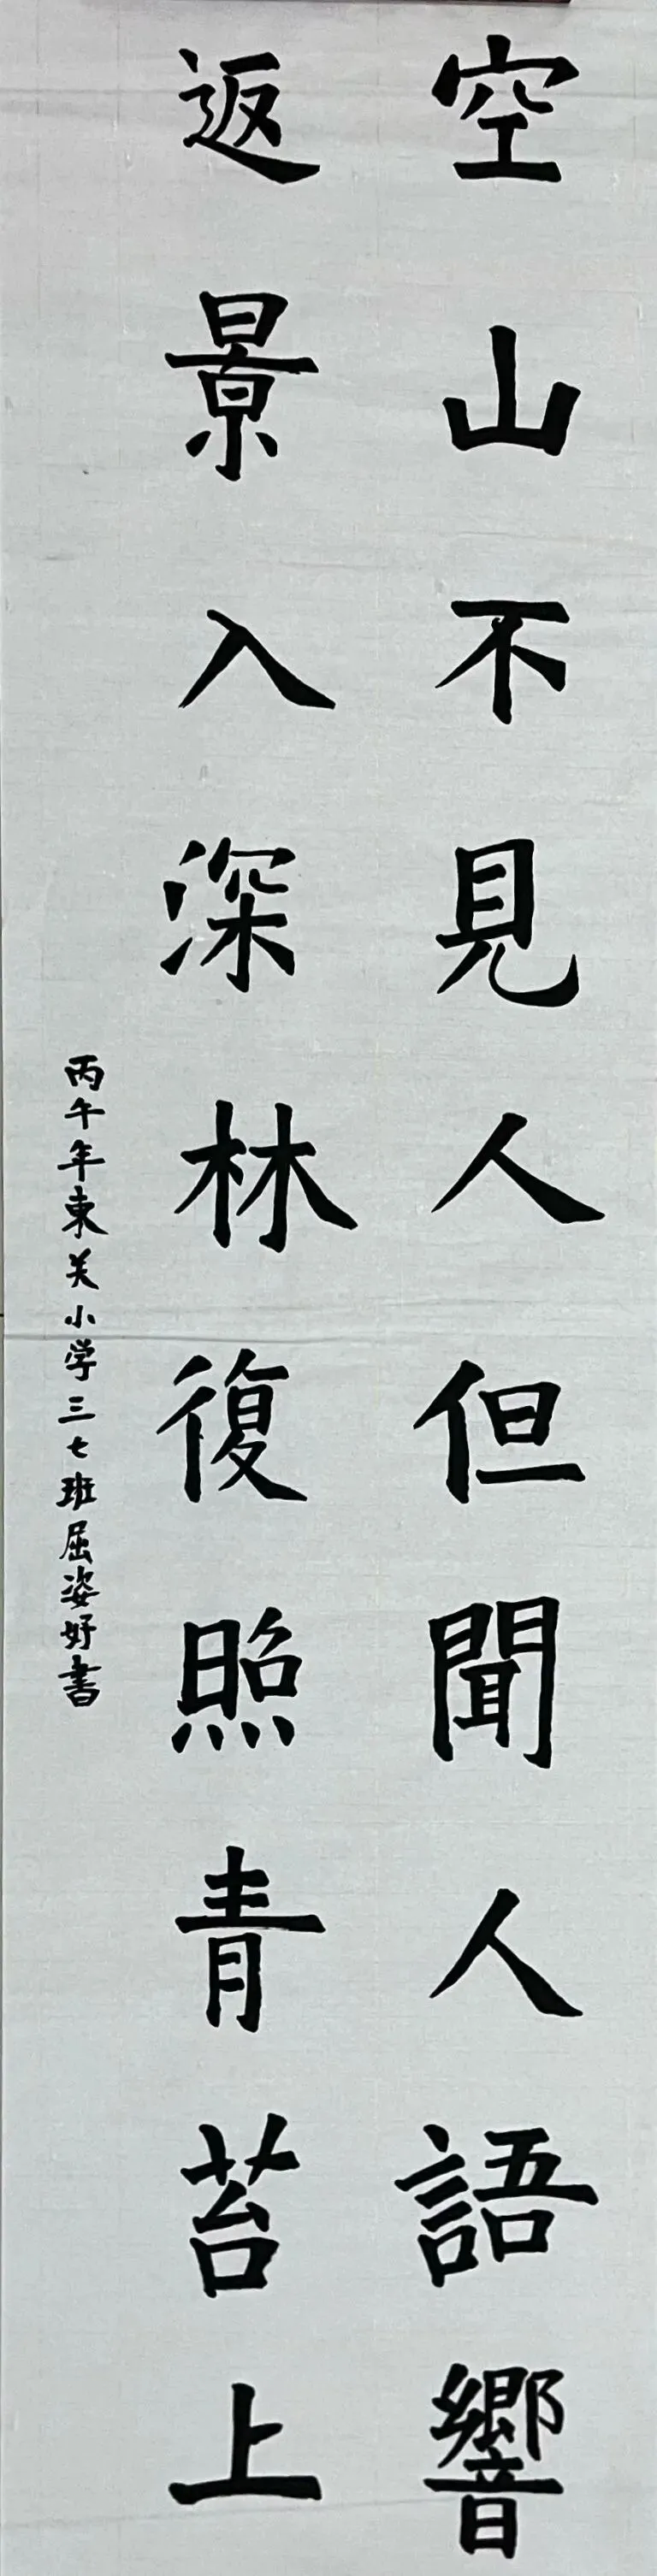 空山不見人但聞人語響
返景入深林復照青苔上
丙午年東关小学三七班屈姿好書